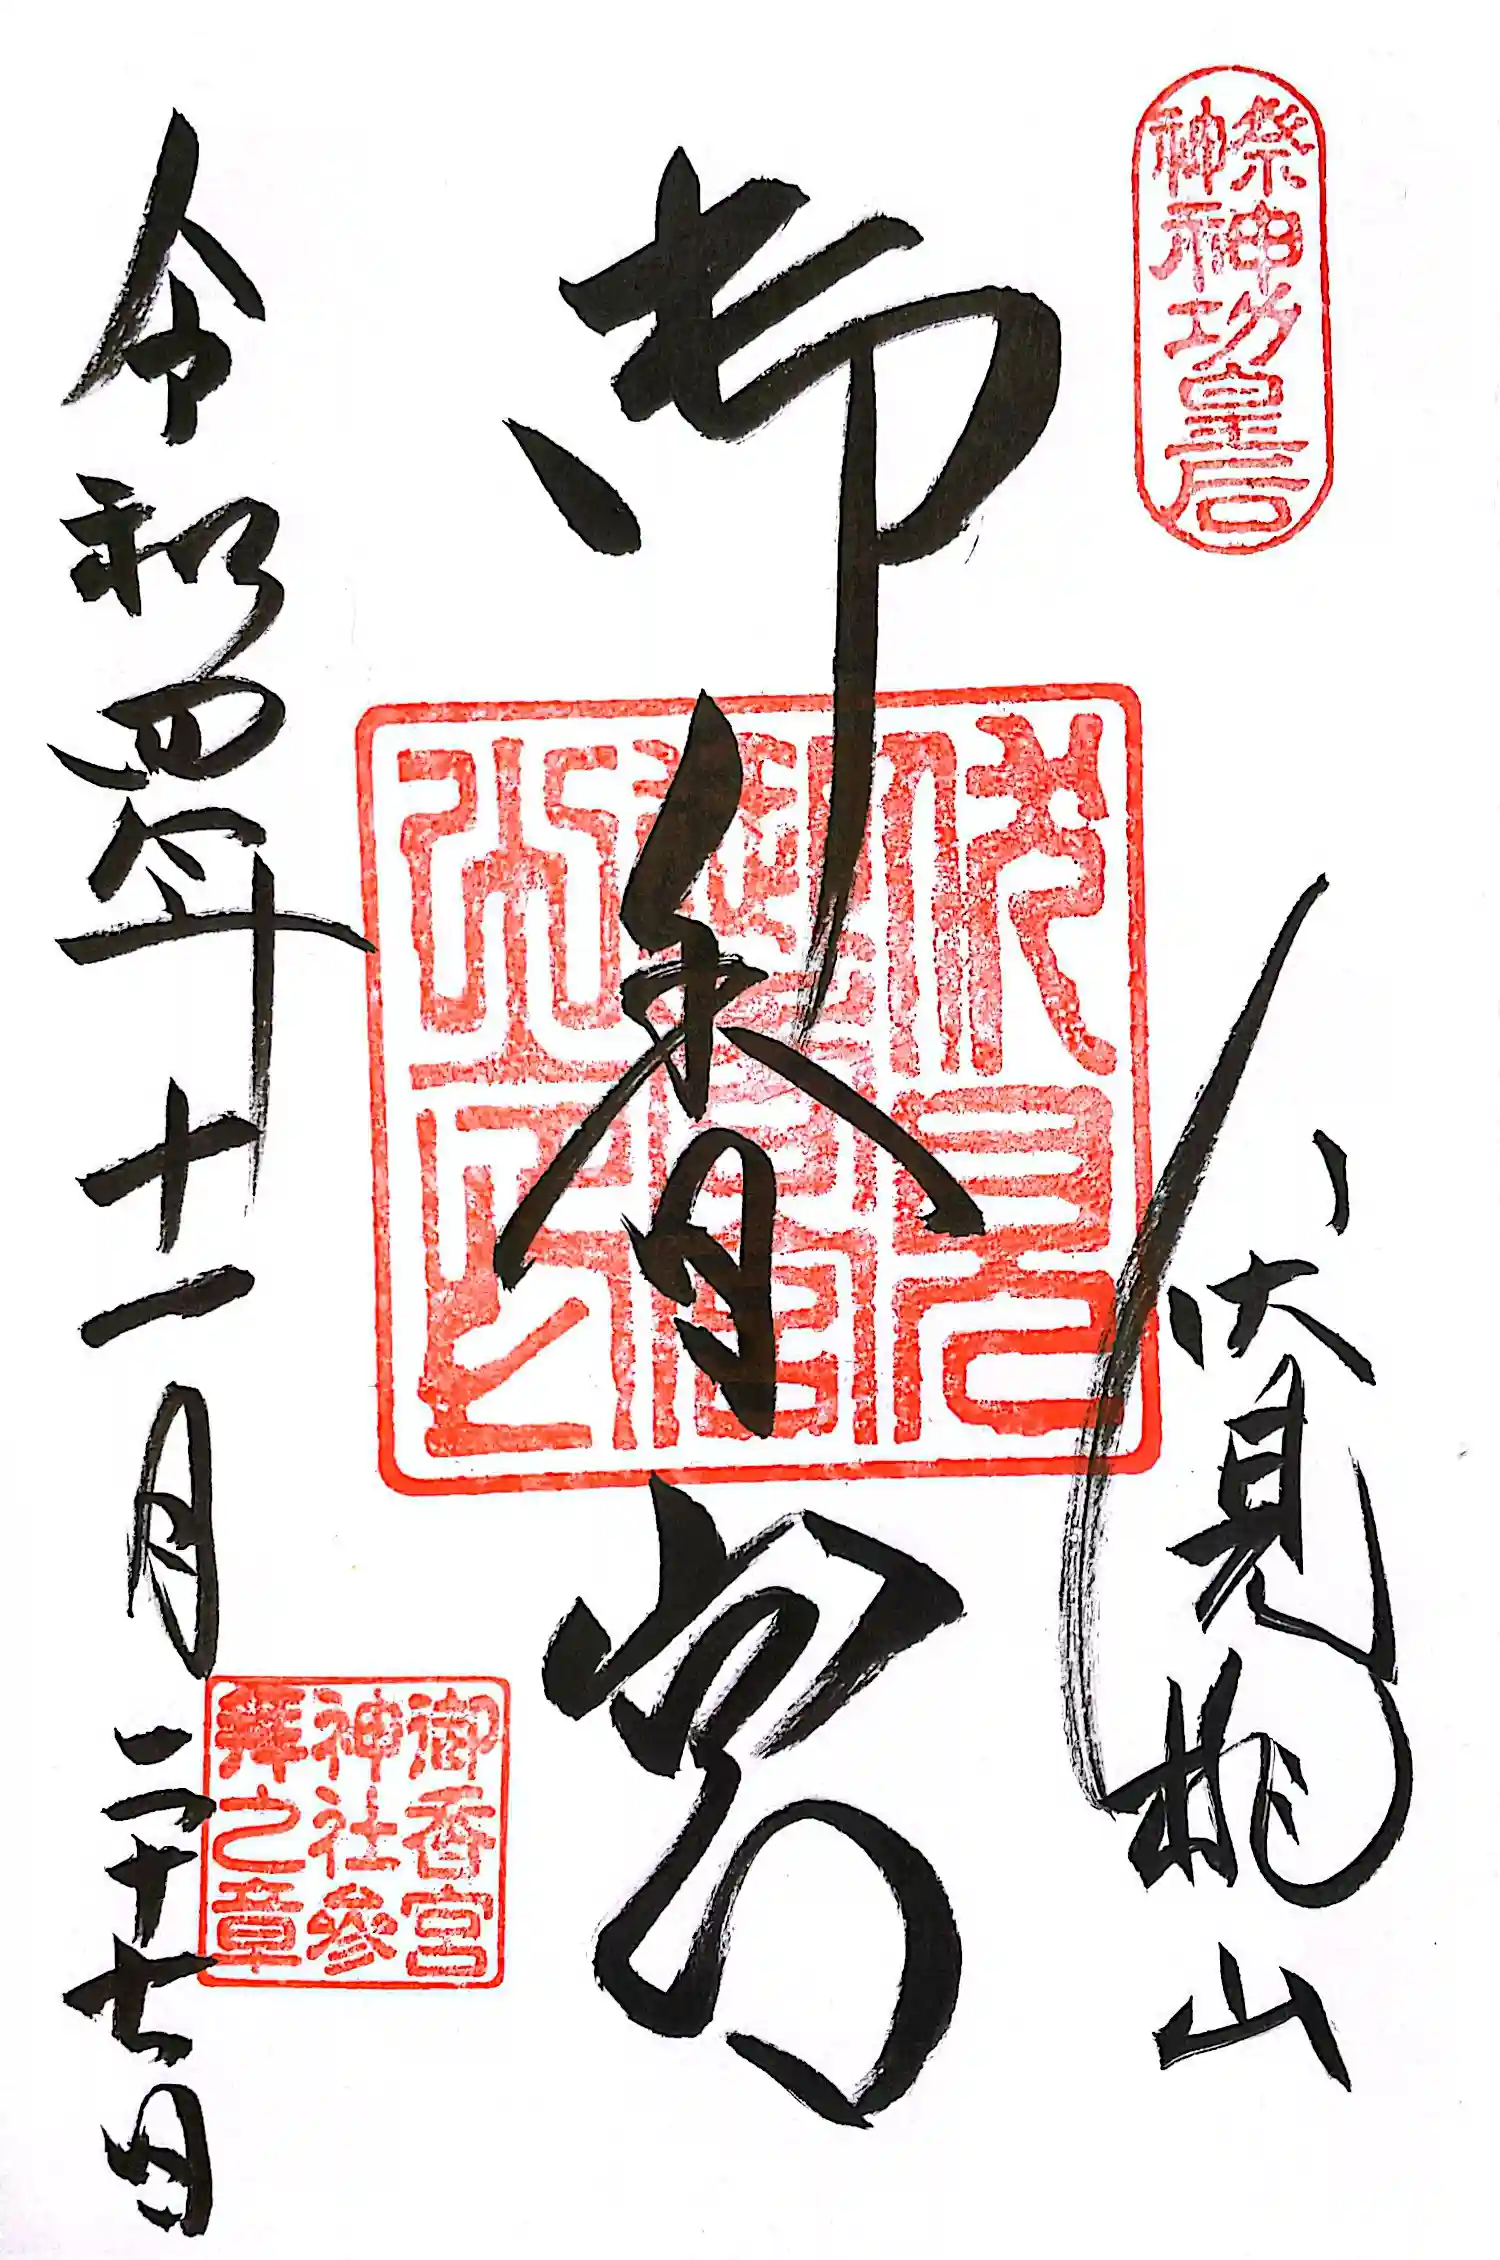 祭神
神功皇后
伏見桃山
御香宮
伏見
御香宮
御香宮
神社參
拜之章
令和四年十一月二十七日